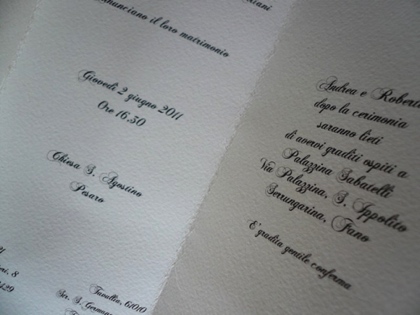 annunciano il loro matrimonio
Giovedì 2 giugno 2011
Ore 16.30
Chiesa S. Agostino
Pesaro
Andrea e Roberta
dopo la cerimonia
saranno lieti
di avervi graditi ospiti a
Palazzina Sabatelli
Via Palazzina, S. Ippolito
Serrungarina, Fano
E' gradita gentile conferma